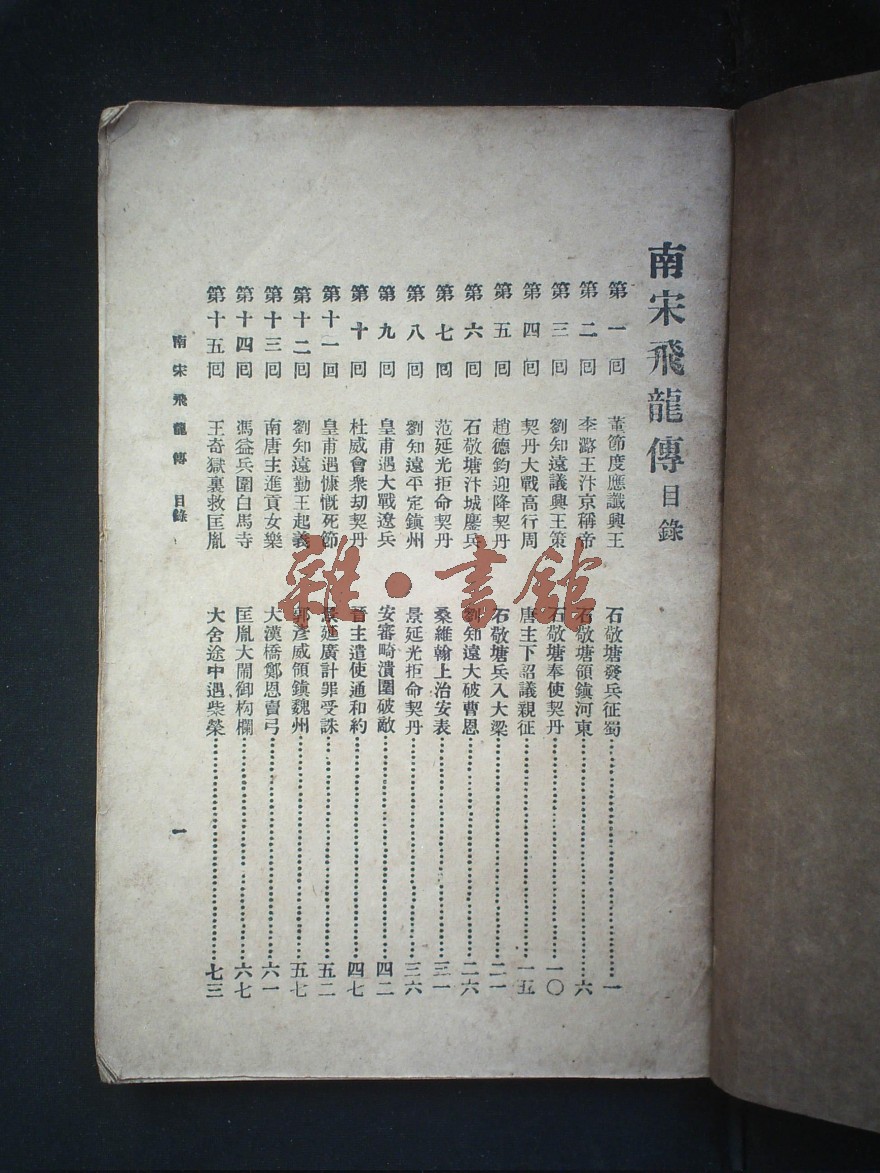 南宋飛龍傳 目錄
第一回 董節度應讖興王 石敬塘發兵征蜀 一
第二回 李潞王汴京稱帝 石敬塘領鎮河東 六
第三回 劉知遠議興王策 石敬塘奉使契丹 一〇
第四回 契丹大戰高行周 唐主下詔議親征 一五
第五回 趙德鈞迎降契丹 石敬塘兵入大梁 二一
第六回 石敬塘汴城鏖兵 劉知遠大破曹恩 二六
第七回 范延光拒命契丹 桑維翰上治安表 三一
第八回 劉知遠平定鎮州 景延光拒命契丹 三六
第九回 皇甫遇大戰遼兵 安審畸潰圍破敵 四二
第十回 杜威會衆劫契丹 晉主遣使通和約 四七
第十一回 皇甫遇慷慨死節 景延廣計罪受誅 五二
第十二回 劉知遠勤王起義 郭彥威領鎮魏州 五七
第十三回 南唐主進貢女樂 大漢橋鄭恩賣弓 六一
第十四回 馮益兵圍白馬寺 匡胤大鬧御枸欄 六七
第十五回 王奇獄裏救匡胤 大舍途中遇柴榮 七三
南宋飛龍傳 目錄 一
雜·書館